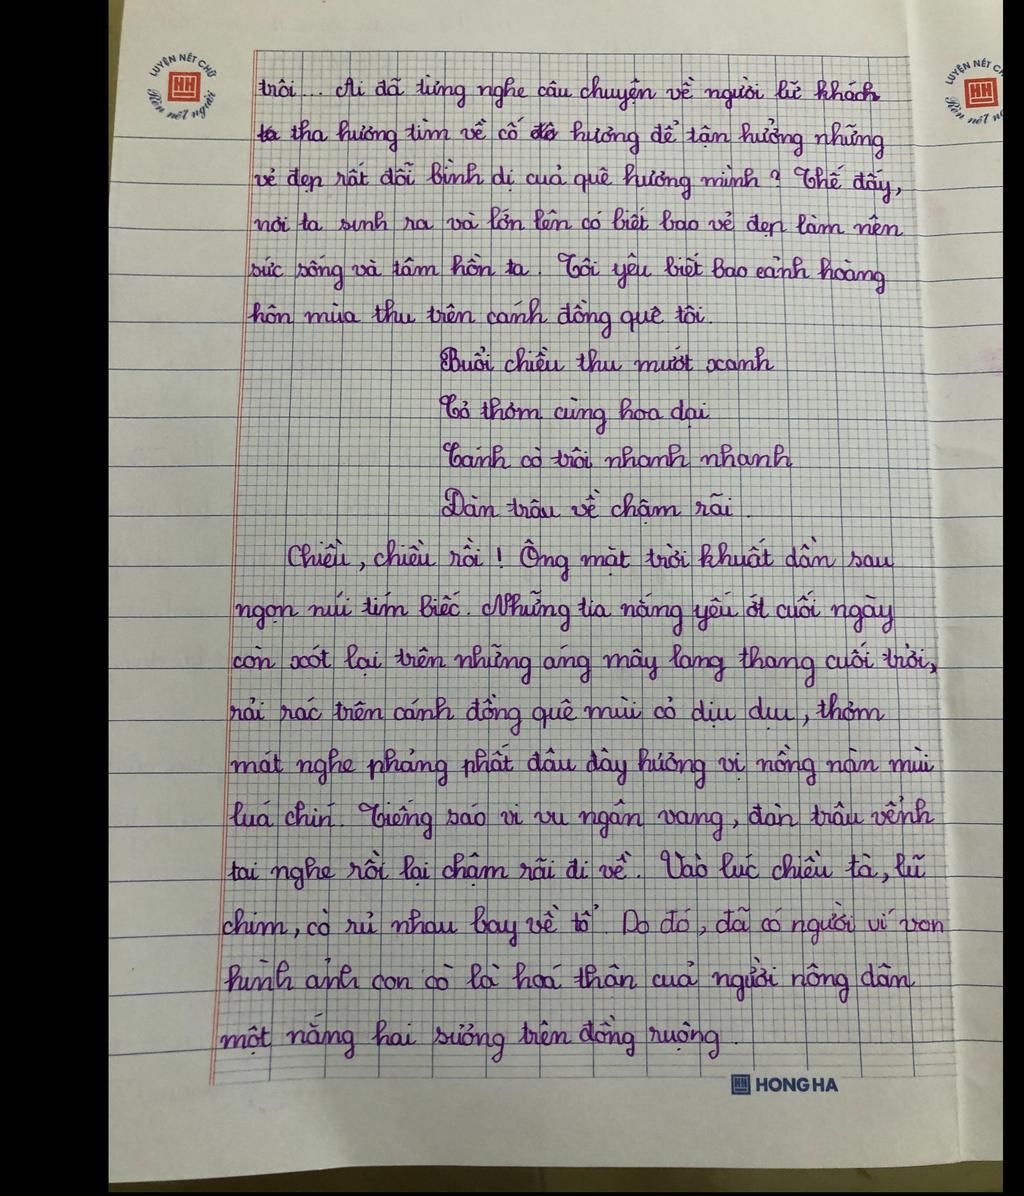 LUYỆN NÉT CHỮ
HH
Rèn nết người
LUYỆN NÉT CH
HH
Rèn nết n
trôi... Ai đã từng nghe câu chuyện về người lữ khách
ta tha hương tìm về cố đô hương để tận hưởng những
vẻ đẹp rất đỗi bình dị của quê hương mình? Thế đấy,
nơi ta sinh ra và lớn lên có biết bao vẻ đẹp làm nên
sức sống và tâm hồn ta. Tôi yêu biết bao cảnh hoàng
hôn mùa thu trên cánh đồng quê tôi.
Buổi chiều thu mướt xanh
Cỏ thơm cùng hoa dại
Cánh cò trôi nhanh nhanh
Đàn trâu về chậm rãi.
Chiều, chiều rồi! Ông mặt trời khuất dần sau
ngọn núi tím biếc. Những tia nắng yếu ớt cuối ngày
còn xót lại trên những áng mây lang thang cuối trời,
rải rác trên cánh đồng quê mùi cỏ dịu dịu, thơm
mát nghe phảng phất đâu đây hương vị nồng nàn mùi
lúa chín. Tiếng sáo vi vu ngân vang, đàn trâu vểnh
tai nghe rồi lại chậm rãi đi về. Vào lúc chiều tà, lũ
chim, cò rủ nhau bay về tổ. Do đó, đã có người ví von
hình ảnh con cò là hoá thân của người nông dân
một nắng hai sương trên đồng ruộng.
HH HONG HA